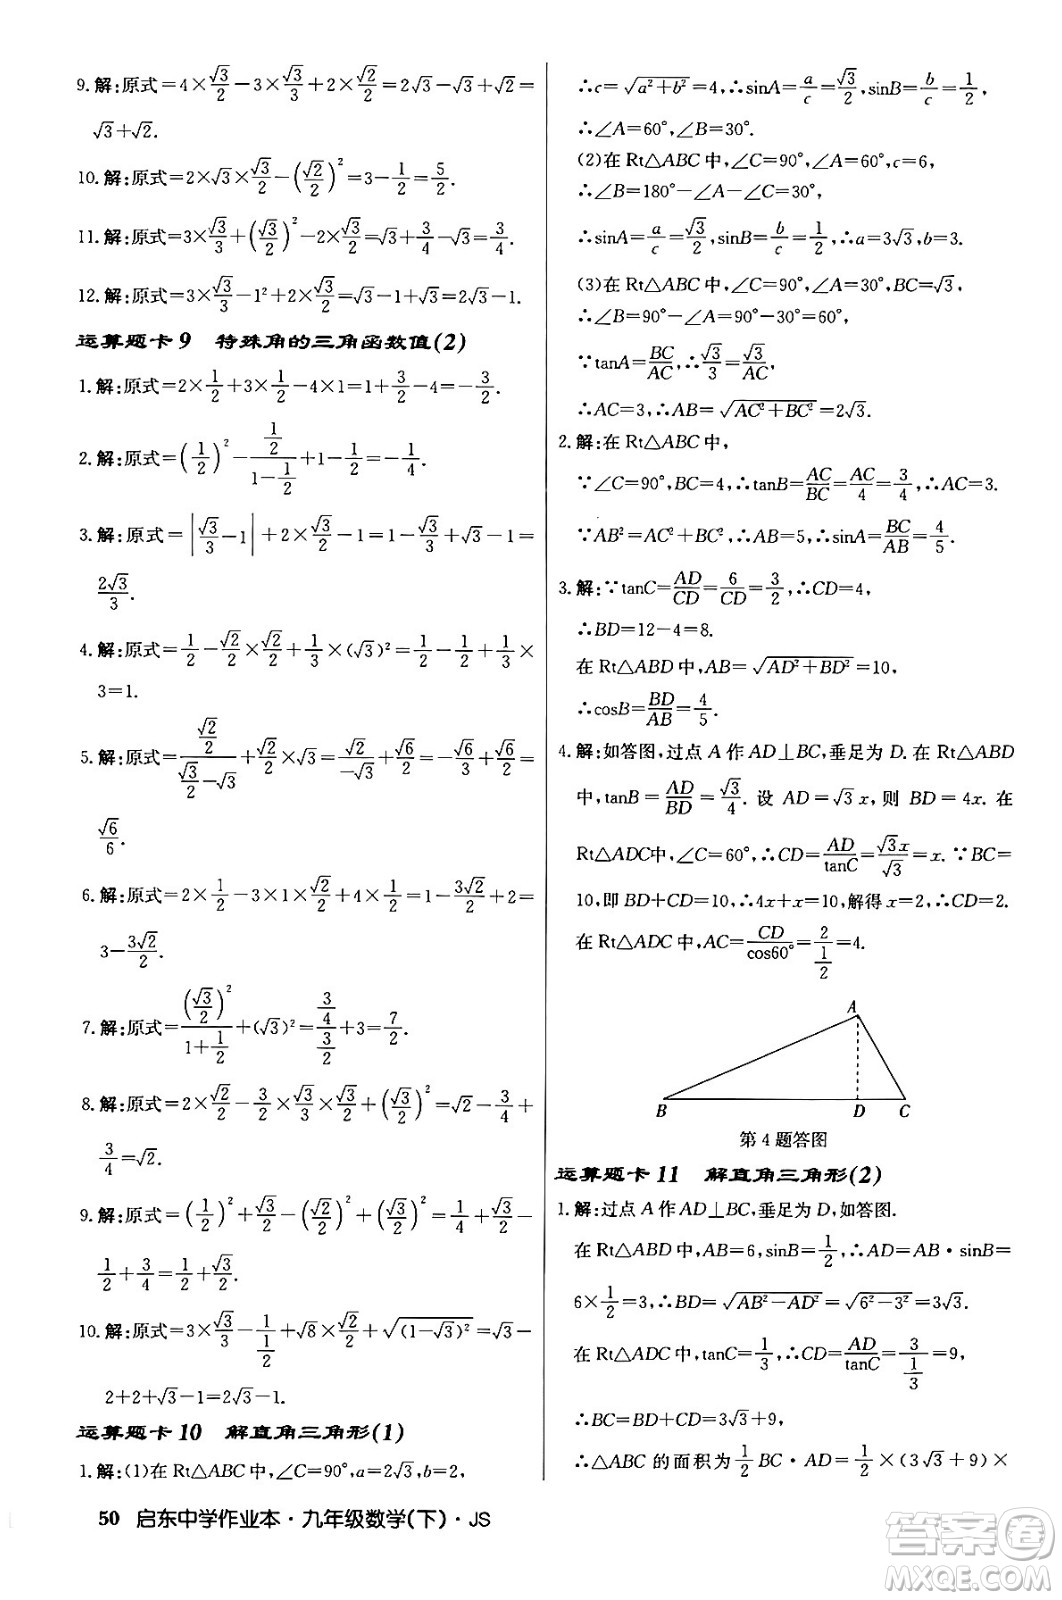 9. 解:原式=4×√3/2-3×√3/3+2×√2/2=2√3-√3+√2=
√3+√2.
10. 解:原式=2×√3×√3/2-(√2/2)²=3-1/2=5/2.
11. 解:原式=3×√3/3+(√3/2)²-2×√3/2=√3+3/4-√3=3/4.
12. 解:原式=3×√3/3-1²+2×√3/2=√3-1+√3=2√3-1.
运算题卡 9 特殊角的三角函数值(2)
1. 解:原式=2×1/2+3×1/2-4×1=1+3/2-4=-3/2.
2. 解:原式=(1/2)²-(1/2)/(1-1/2)+1=1/4-1+1=1/4.
3. 解:原式=|√3/3-1|+2×√3/2=1-√3/3+√3-1=
2√3/3.
4. 解:原式=1/2-√2/2×√2/2+1/3×(√3)²=1/2-1/2+1/3×
3=1.
5. 解:原式=(√2/2)/(√3/2-√3)+√2/2×√3=(√2/2)/(-√3/2)+√6/2=-√6/3+√6/2=
√6/6.
6. 解:原式=2×1/2-3×1×√2/2+4×1/2=1-3√2/2+2=
3-3√2/2.
7. 解:原式=(√3/2)²/(1+1/2)+(√3)²=(3/4)/(3/2)+3=7/2.
8. 解:原式=2×√2/2-3/2×√3/3×√3/2+(√3/2)²=√2-3/4+
3/4=√2.
9. 解:原式=(1/2)²+√3/2-(√2/2)²+(√3/2)²=1/4+√3/2-
1/2+3/4=1/2+√3/2.
10. 解:原式=3×√3/3-1/(1/2)+√8×√2/2+√(1-√3)²=√3-
2+2+√3-1=2√3-1.
运算题卡 10 解直角三角形(1)
1. 解:(1)在 Rt△ABC 中,∠C=90°,a=2√3,b=2,
∴c=√(a²+b²)=4,∴sinA=a/c=√3/2,sinB=b/c=1/2,
∴∠A=60°,∠B=30°.
(2)在 Rt△ABC 中,∠C=90°,∠A=60°,c=6,
∴∠B=180°-∠A-∠C=30°,
∴sinA=a/c=√3/2,sinB=b/c=1/2,∴a=3√3,b=3.
(3)在 Rt△ABC 中,∠C=90°,∠A=30°,BC=√3,
∴∠B=90°-∠A=90°-30°=60°.
∵tanA=BC/AC,∴√3/3=√3/AC,
∴AC=3,∴AB=√(AC²+BC²)=2√3.
2. 解:在 Rt△ABC 中,
∵∠C=90°,BC=4,∴tanB=AC/BC=AC/4=3/4,∴AC=3.
∵AB²=AC²+BC²,∴AB=5,∴sinA=BC/AB=4/5.
3. 解:∵tanC=AD/CD=6/CD=3/2,∴CD=4,
∴BD=12-4=8.
在 Rt△ABD 中,AB=√(AD²+BD²)=10,
∴cosB=BD/AB=4/5.
4. 解:如答图,过点 A 作 AD⊥BC,垂足为 D. 在 Rt△ABD
中,tanB=AD/BD=√3/4. 设 AD=√3x,则 BD=4x. 在
Rt△ADC中,∠C=60°,∴CD=AD/tanC=√3x/√3=x. ∵BC=
10,即 BD+CD=10,∴4x+x=10,解得 x=2,∴CD=2.
在 Rt△ADC 中,AC=CD/cos60°=2/(1/2)=4.
A
B D C
第 4 题答图
运算题卡 11 解直角三角形(2)
1. 解:过点 A 作 AD⊥BC,垂足为 D,如答图.
在 Rt△ABD 中,AB=6,sinB=1/2,∴AD=AB·sinB=
6×1/2=3,∴BD=√(AB²-AD²)=√(6²-3²)=3√3.
在 Rt△ADC 中,tanC=1/3,∴CD=AD/tanC=3/(1/3)=9,
∴BC=BD+CD=3√3+9,
∴△ABC 的面积为1/2BC·AD=1/2×(3√3+9)×
50 启东中学作业本·九年级数学(下)·JS
答案圈
MXQE.COM